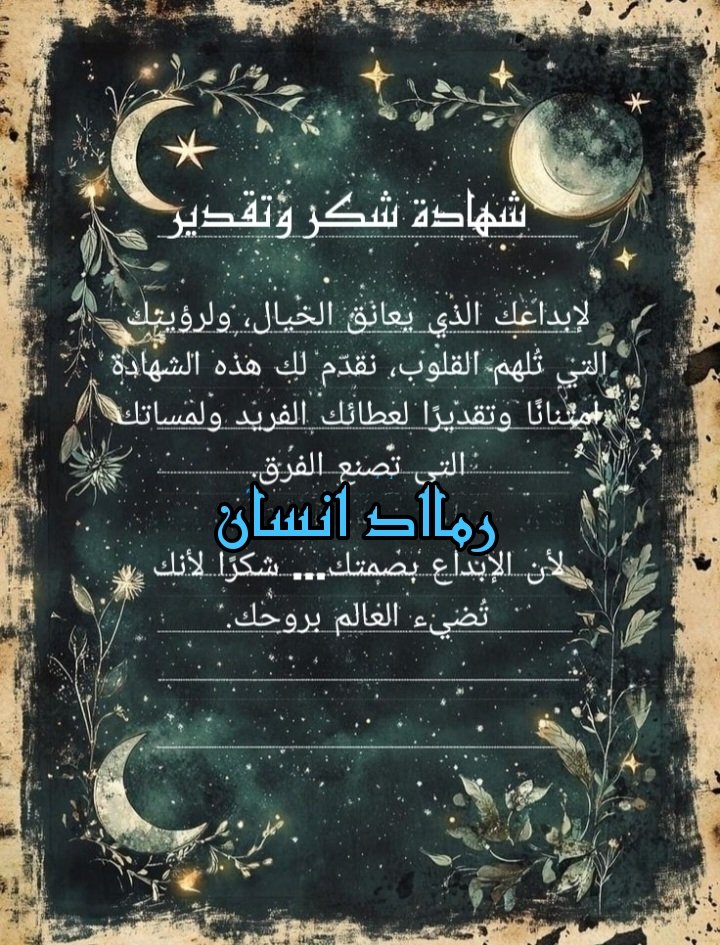 شهادة شكر وتقدير
لإبداعك الذي يعانق الخيال، ولرؤيتك
التي تُلهم القلوب، نقدّم لك هذه الشهادة
امتنانًا وتقديرًا لعطائك الفريد ولمساتك
التي تصنع الفرق.
رمااد انسان
لأن الإبداع بصمتك... شكرًا لأنك
تُضيء العالم بروحك.